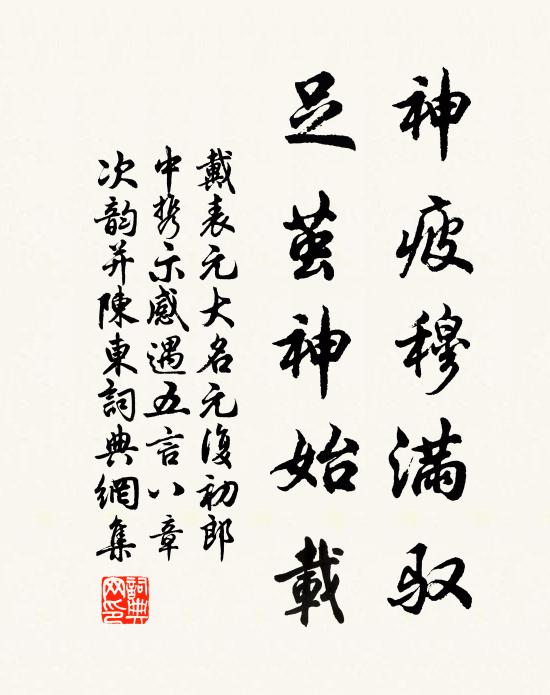 神疲穆滿馭
足茧神始載
戴表元大名元復初郎
中携示感遇五言八章
次韵并陳東詞典網集
詞典
网印